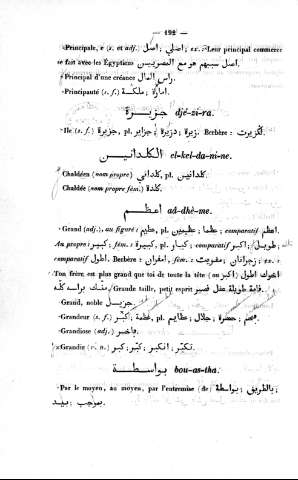 — 492 —
«Principale, e (s. et adj.) اصل ; اصلي ; ex. : «Leur principal commerce
se fait avec les Égyptiens اصل سببهم هو مع المصريين.
«Principal d'une créance راس المال.
«Principauté (s. f.) امارة ; ملكة.
جزيرة djé-zi-ra.
«Ile (s. f.) جزيرة, pl. جزاير ; دزيرة ; زيرة. Berbère :
الكلدانيين el-kel-da-ni-ne.
Chaldéen (nom propre) كلداني, pl. كلدانيين.
Chaldée (nom propre fém.) كلدة.
اعظم ad-dhè-me.
«Grand (adj.), au figuré : عظيم, pl. عظيمين ; عظما ; comparatif اعظم.
Au propre : كبير ; fém. : كبيرة, pl. كبار ; comparatif اكبر ; طويل,
comparatif اطول. Berbère, امغران ; fém. : ; ex. :
Ton frère est plus grand que toi de toute la tête (اكبر ou) اخوك اطول
منك براسه كله. Grande taille, petit esprit قامة طويلة عقل قصير.
«Grand, noble جزيل.
«Grandeur (s. f.) كبر ; عظمة, pl. عظايم ; جلال ; حضرة ;
«Grandiose (adj.)
«Grandir (v. n.) كبر ; كبر ; انكبر ; تكبر.
بواسطة bou-as-tha.
«Par le moyen, au moyen, par l'entremise (de) بواسطة ; بالطريق ;
بموجب ; بيد.